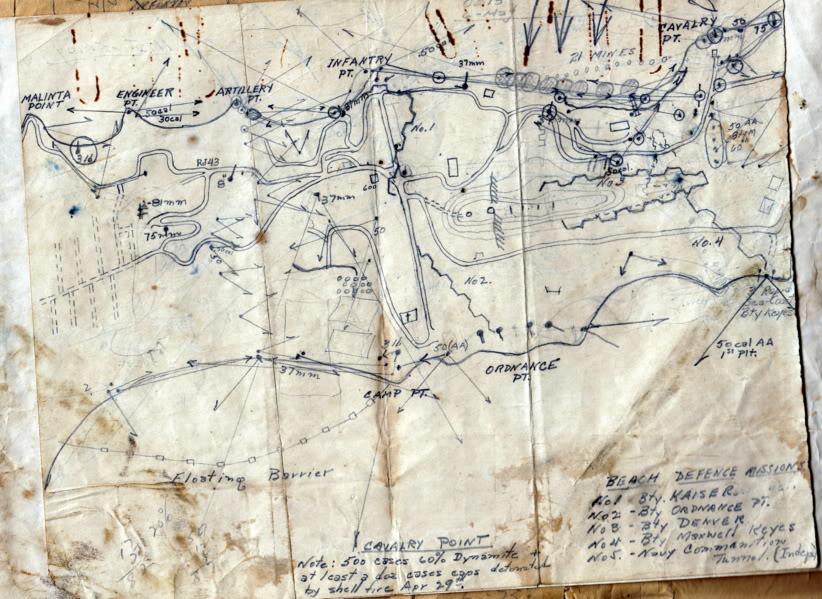 CAVALRY
PT.
50
75
mm
50cal
INFANTRY
PT.
37mm
21 MINES
MALINTA
POINT
ENGINEER
PT.
50cal
30cal
ARTILLERY
PT.
37mm
316
No.1
50 AA
60
RJ43
8"
600
37mm
50cal
No.3
81mm
75mm
50
No.4
No2.
316
50(AA)
37mm
ORDNANCE
PT.
CAMP PT.
Bty Keyes
50cal AA
1st Plt.
2
Floating Barrier
BEACH DEFENCE MISSIONS
No1 - Bty. KAISER
No2 - Bty ORDNANCE PT.
No3 - Bty DENVER
No4 - Bty Maxwell Keyes
No5. - Navy Commanition
Tunnel. (Indep
CAVALRY POINT
Note: 500 cases 60% Dynamite +
at least a doz cases caps detonated
by shell fire Apr 29th.